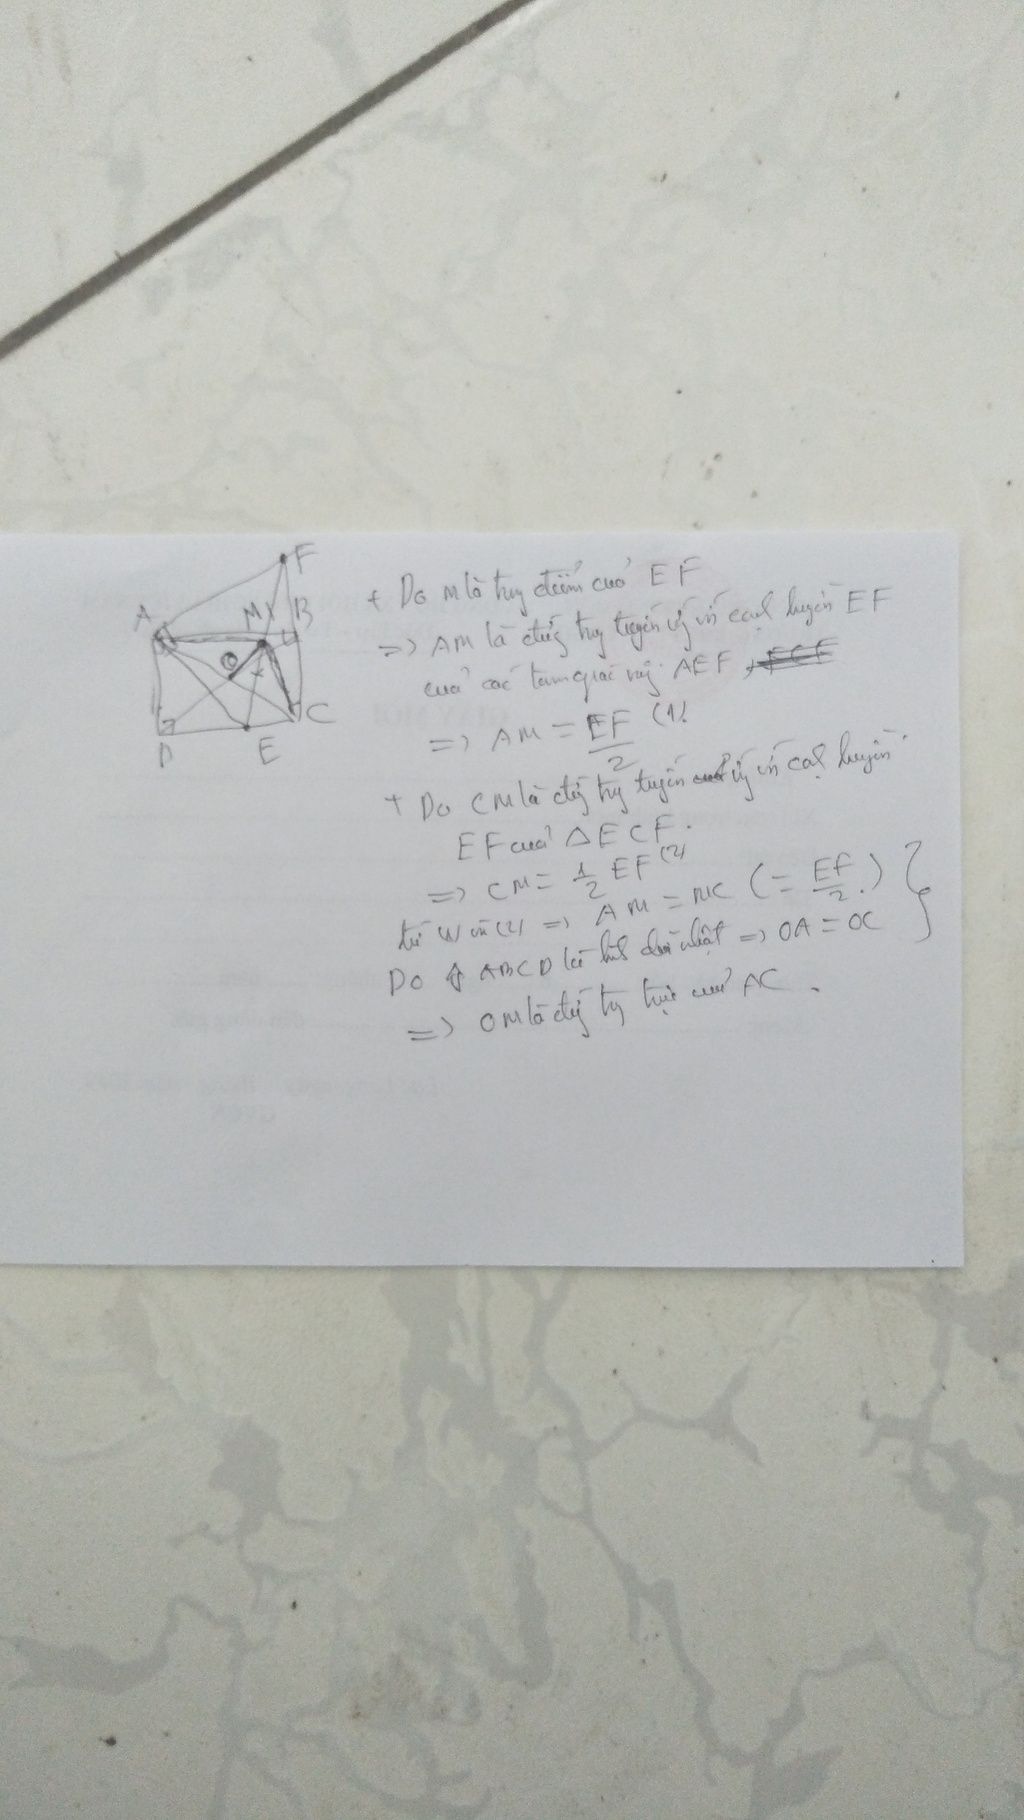 F
A
M
B
O
D
E
C
+ Do M là trg điểm của EF
=> AM là đg trg tuyến ứg với cạnh huyền EF
của các tam giác vuôg AEF
=> AM = EF/2 (1)
+ Do CM là đg trg tuyến ứg với cạnh huyền
EF của ΔECF.
=> CM = 1/2 EF (2)
từ (1) và (2) => AM = MC (= EF/2.) }
Do ABCD là hình chữ nhật => OA = OC
=> OM là đg trg trực của AC.